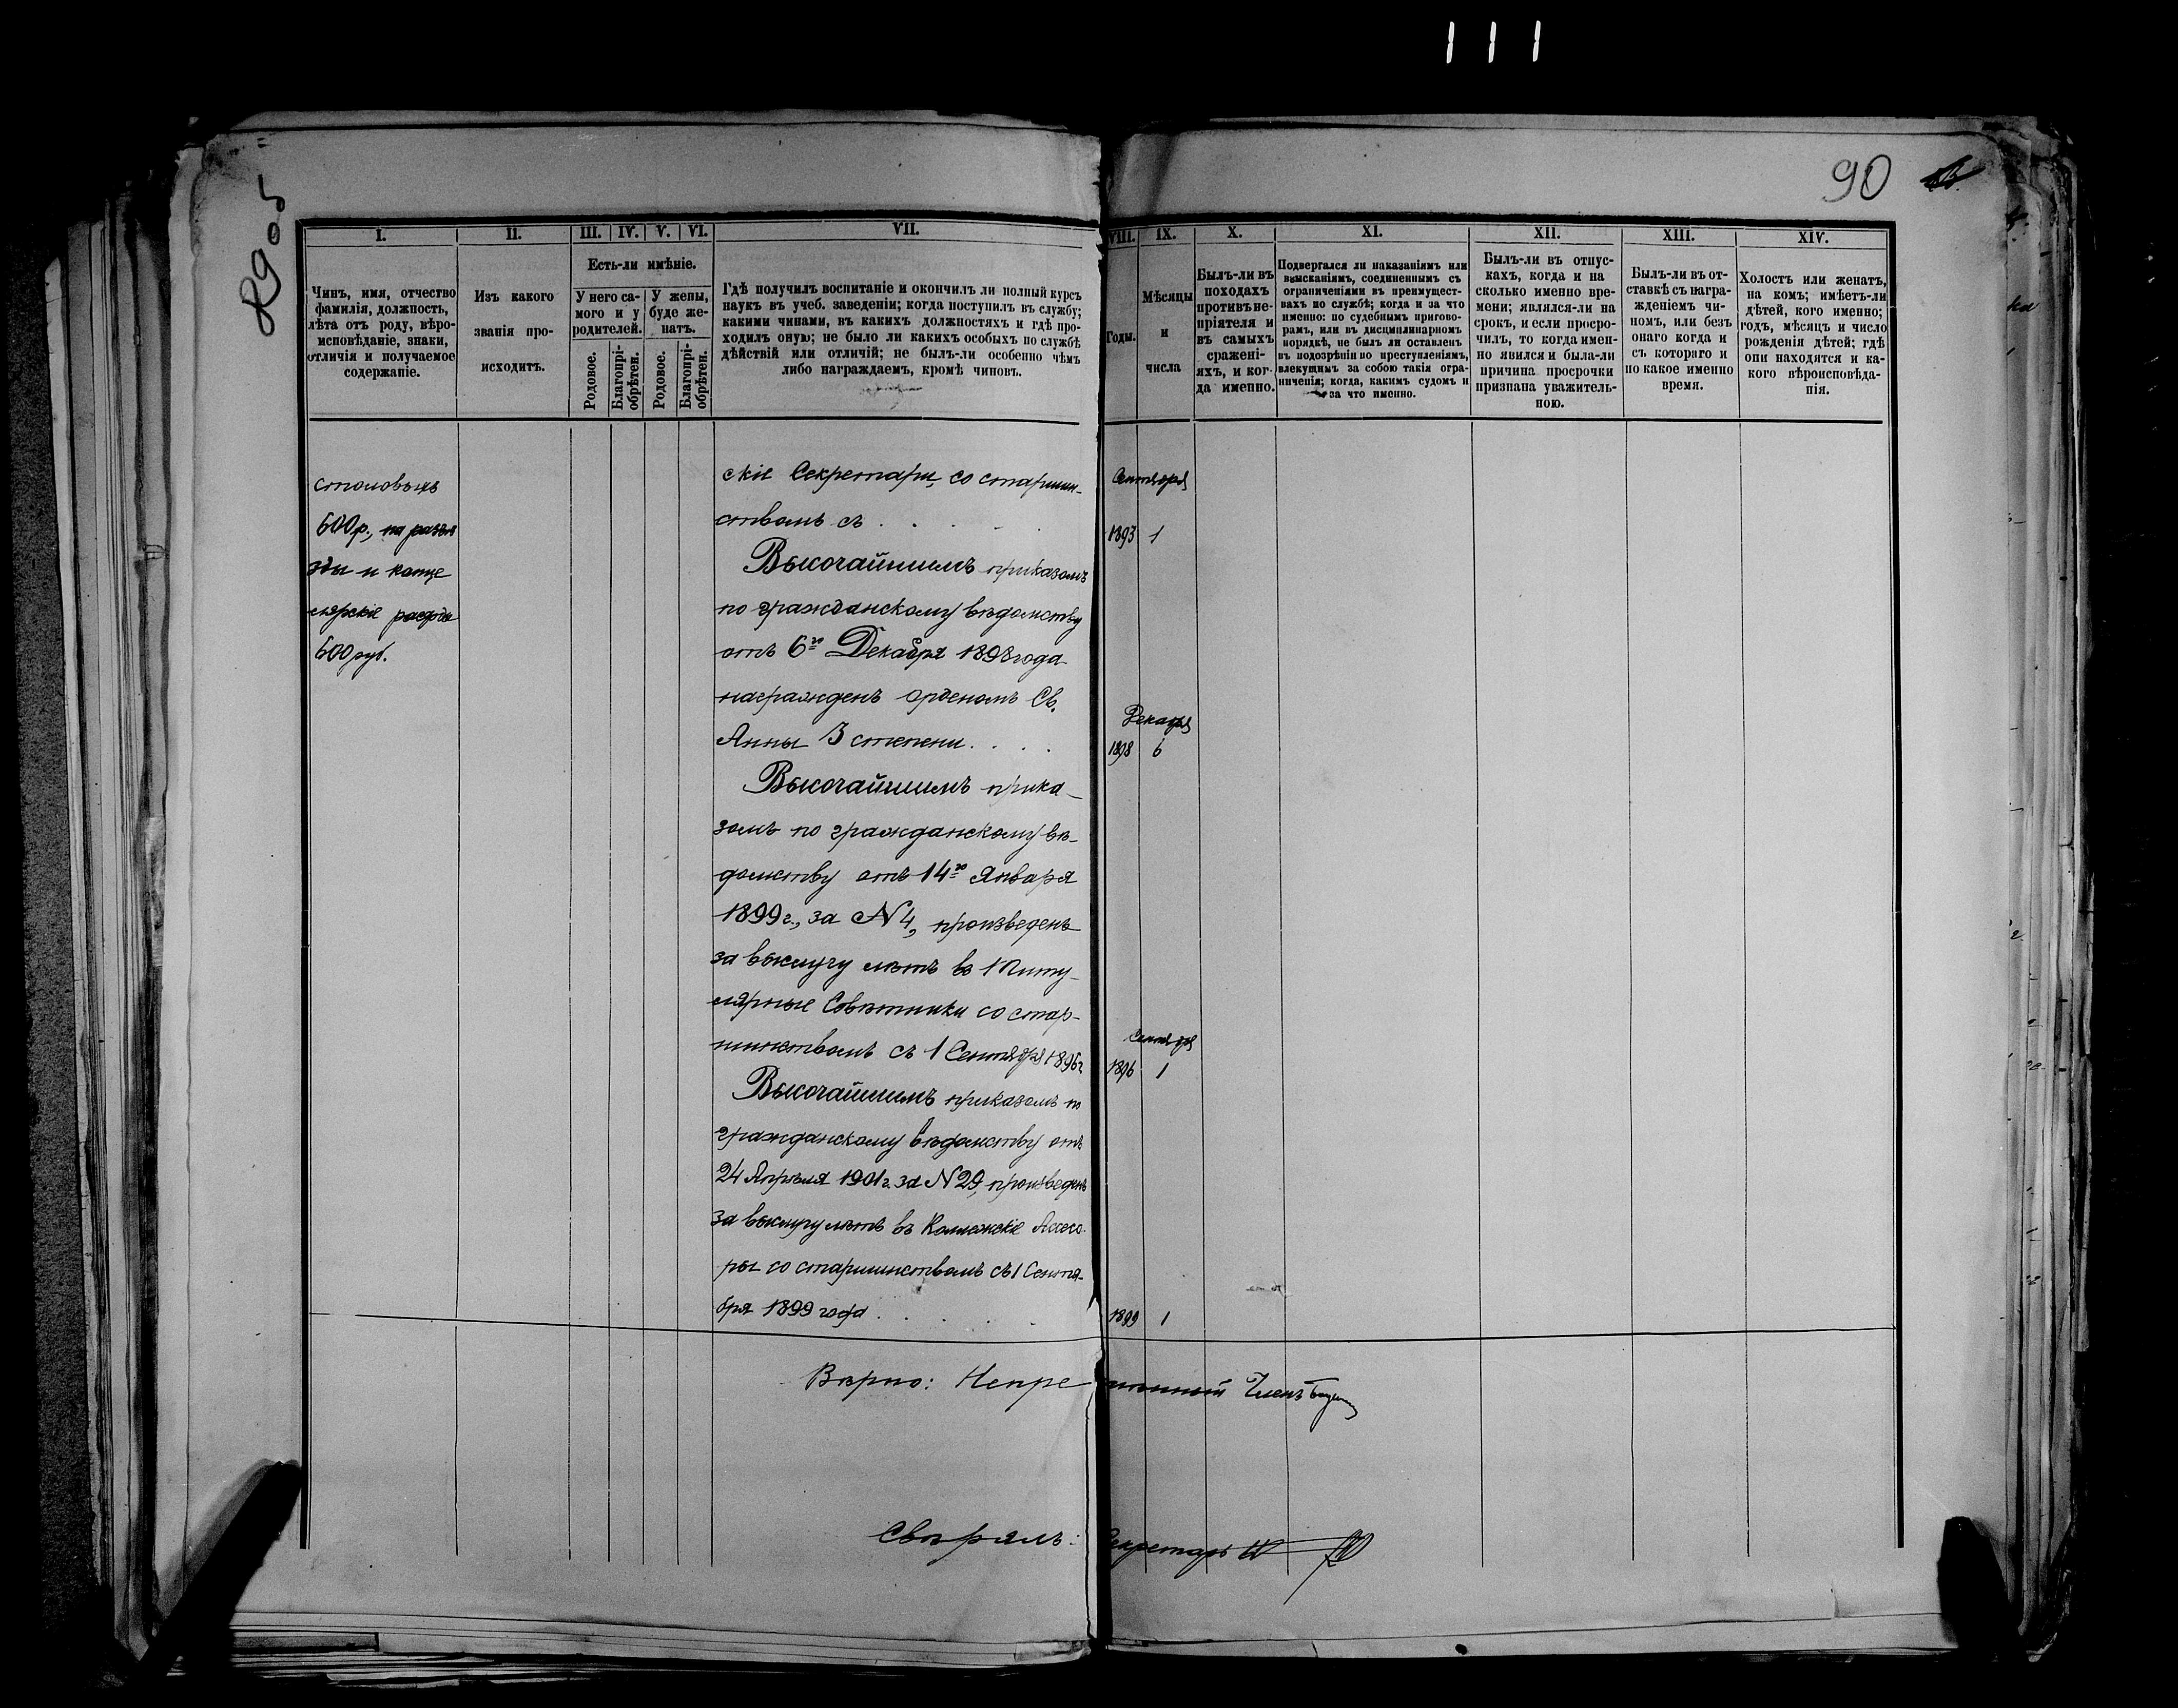 111
89об
90
I.
II.
III.
IV.
V.
VI.
VII.
VIII.
IX.
X.
XI.
XII.
XIII.
XIV.
Чинъ, имя, отчество
фамилія, должность,
лѣта отъ роду, вѣро-
исповѣданіе, знаки,
отличія и получаемое
содержаніе.
Изъ какого
званія про-
исходитъ.
Есть-ли имѣніе.
У него са-
мого и у
родителей.
У жены,
буде же-
натъ.
Родовое.
Благопрі-
обрѣтен.
Родовое.
Благопрі-
обрѣтен.
Гдѣ получилъ воспитаніе и окончилъ ли полный курсъ
наукъ въ учеб. заведеніи; когда поступилъ въ службу;
какими чинами, въ какихъ должностяхъ и гдѣ про-
ходилъ оную; не было ли какихъ особыхъ по службѣ
дѣйствій или отличій; не былъ-ли особенно чѣмъ
либо награждаемъ, кромѣ чиновъ.
Годы.
Мѣсяцы
и
числа
Былъ-ли въ
походахъ
противъ не-
пріятеля и
въ самыхъ
сражені-
яхъ, и ког-
да именно.
Подвергался ли наказаніямъ или
взысканіямъ, соединеннымъ съ
ограниченіями въ преимущест-
вахъ по службѣ; когда и за что
именно: по судебнымъ пригово-
рамъ, или въ дисциплинарномъ
порядкѣ, не былъ ли оставленъ
въ подозрѣніи по преступленіямъ,
влекущимъ за собою такія огра-
ниченія; когда, какимъ судомъ и
за что именно.
Былъ-ли въ отпус-
кахъ, когда и на
сколько именно вре-
мени; являлся-ли на
срокъ, и если просро-
чилъ, то когда имен-
но явился и была-ли
причина просрочки
признана уважитель-
ною.
Былъ-ли въ от-
ставкѣ съ награ-
жденіемъ чи-
номъ, или безъ
онаго когда и
съ котораго и
по какое именно
время.
Холостъ или женатъ,
на комъ; имѣетъ-ли
дѣтей, кого именно;
годъ, мѣсяцъ и число
рожденія дѣтей; гдѣ
они находятся и ка-
кого вѣроисповѣда-
нія.
столовыхъ
600р., на разъѣ
зды и канце
лярскіе расходы
600 руб.
скіе Секретари, со старшин-
ствомъ съ
Сентября
1893 1
Высочайшимъ приказомъ
по гражданскому вѣдомству
отъ 6го Декабря 1898 года
награжденъ орденомъ Св.
Анны 3 степени
Декабря
1898 6
Высочайшимъ прика-
зомъ по гражданскому вѣ-
домству отъ 14го Января
1899 г., за N 4, произведенъ
за выслугу лѣтъ въ Титу-
лярные Совѣтники со стар-
шинствомъ съ 1 Сентября 1896 г
Сентября
1896 1
Высочайшимъ приказомъ по
гражданскому вѣдомству отъ
24 Апрѣля 1901 г. за N 29, произведенъ
за выслугу лѣтъ въ Коллежскіе Ассесо-
ры со старшинствомъ съ 1 Сентя-
бря 1899 года
1899 1
Вѣрно: Непремѣнный Членъ
Свѣрялъ: Секретарь